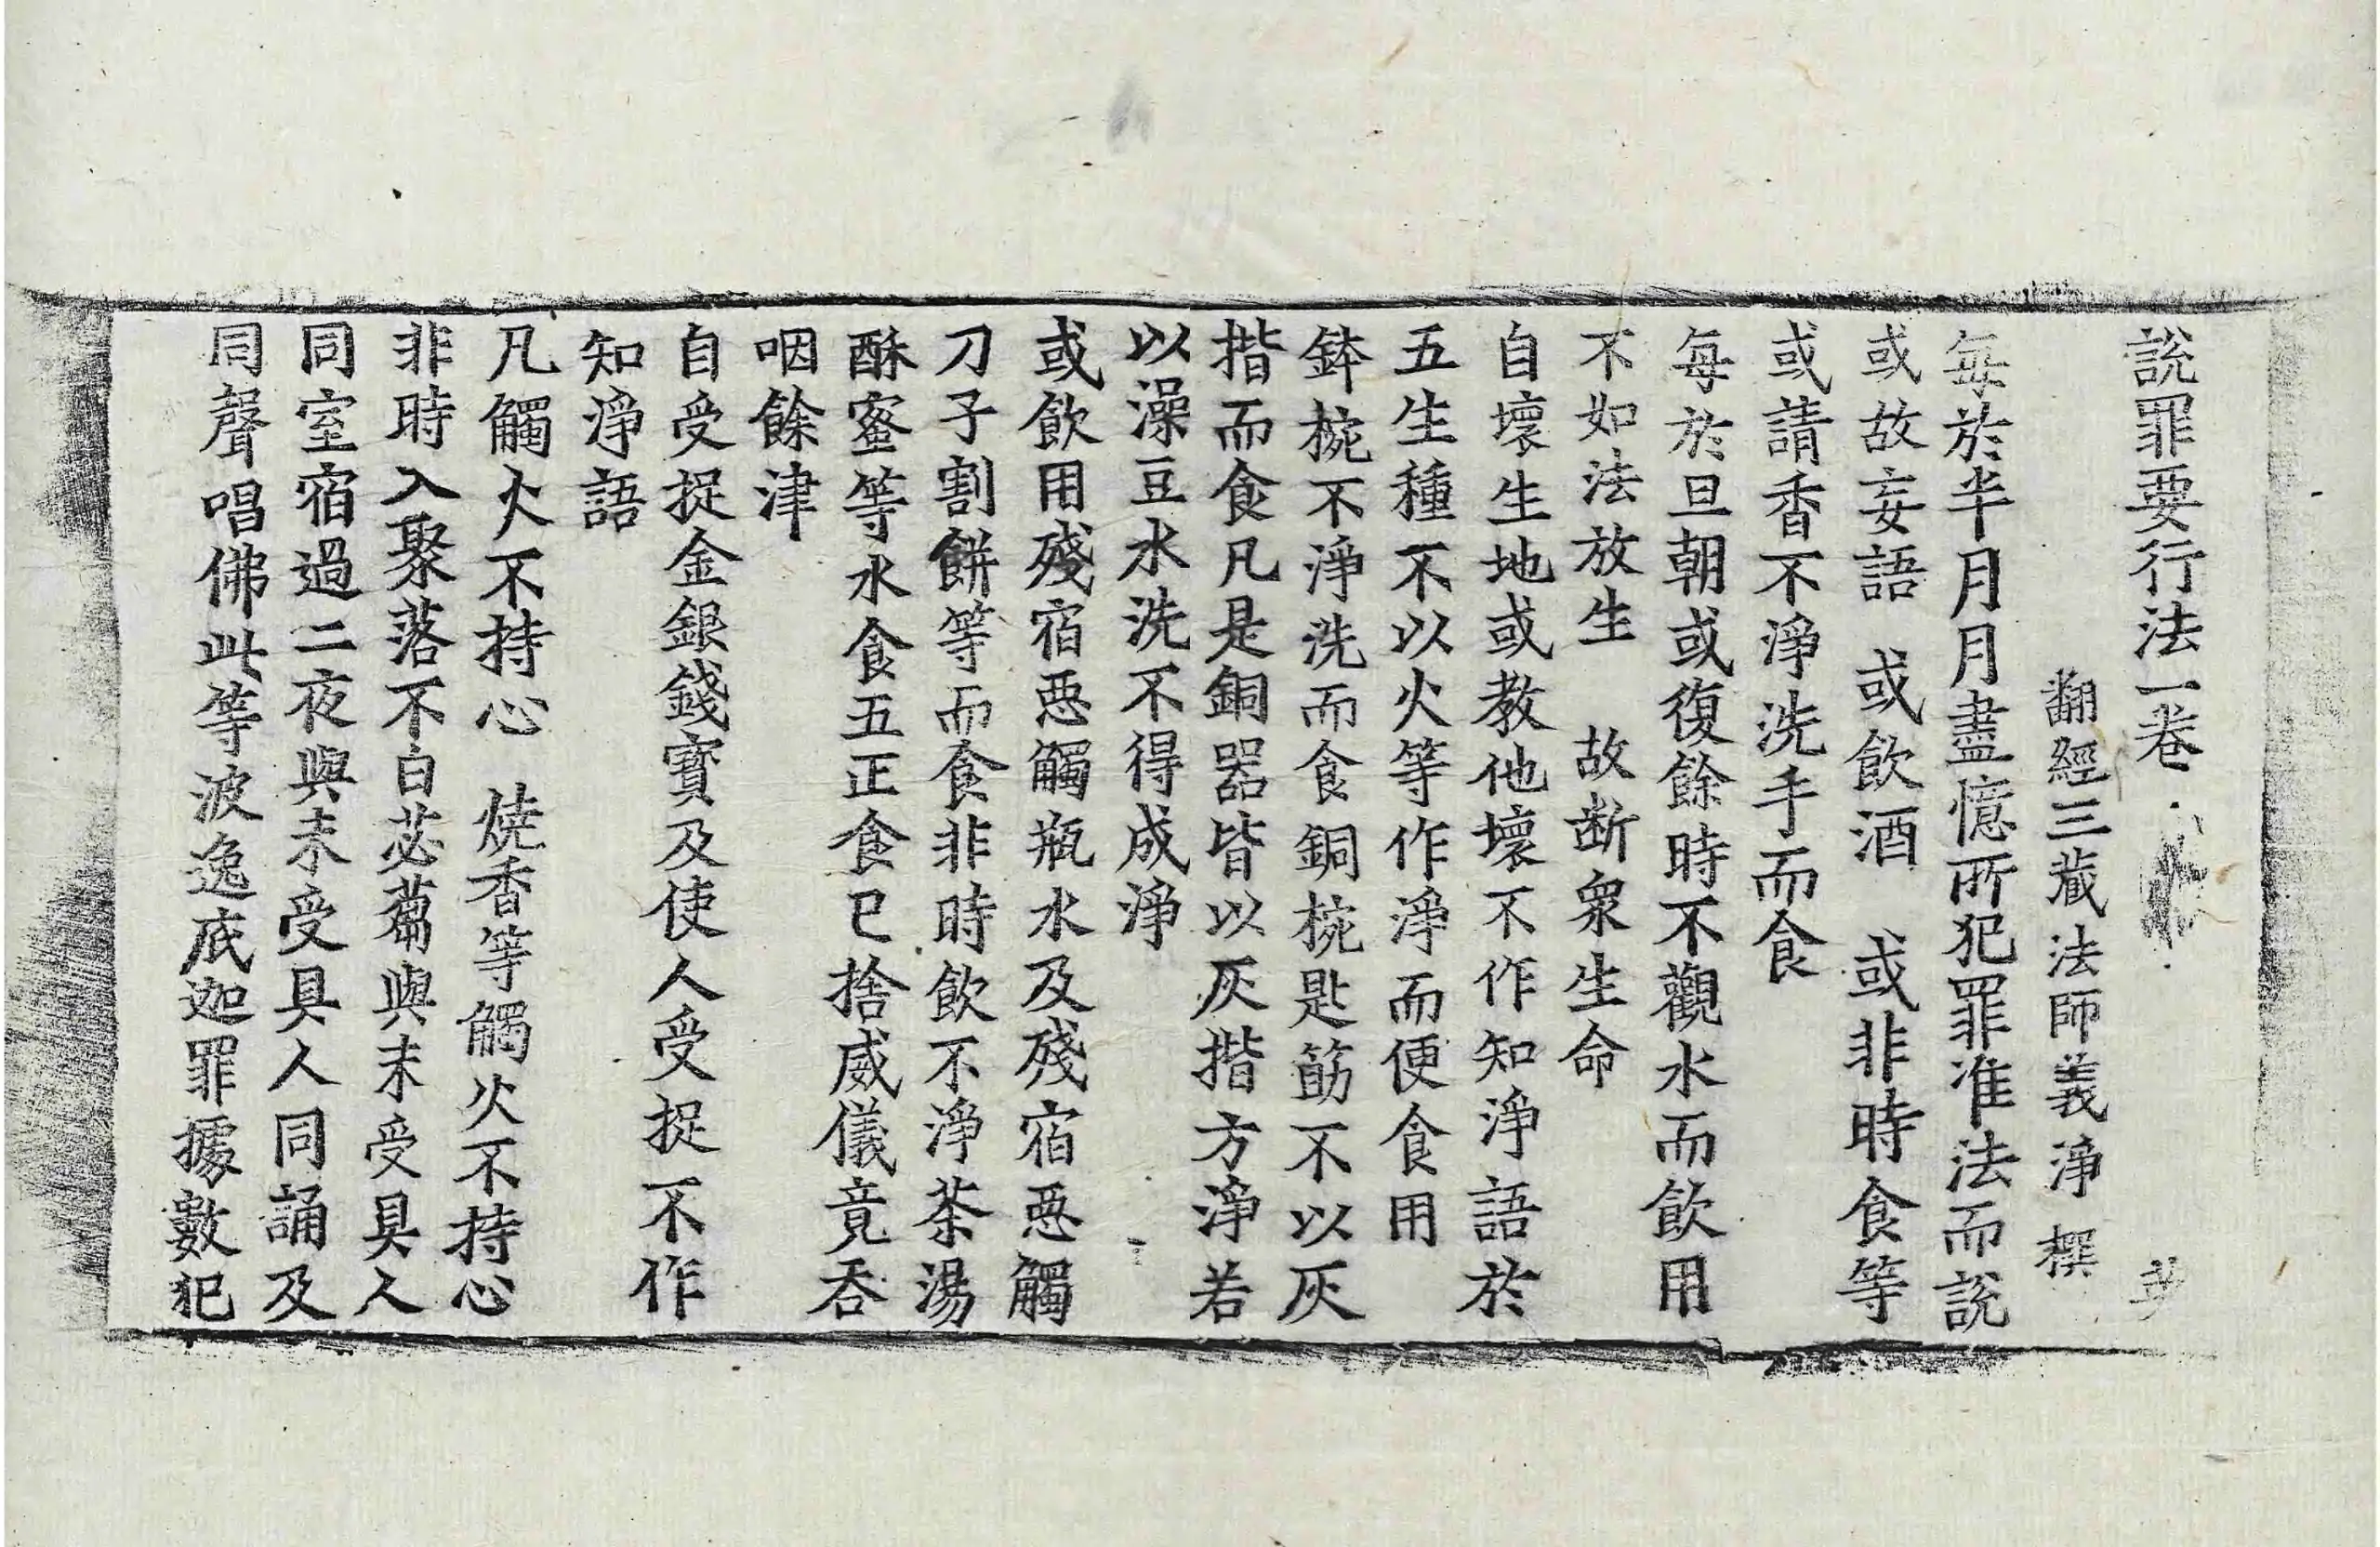 說罪要行法一卷 英
翻經三藏法師義淨 撰
每於半月月盡憶所犯罪准法而說
或故妄語 或飲酒 或非時食等
或請香不淨洗手而食
每於旦朝或復餘時不觀水而飲用
不如法放生 故断衆生命
自壞生地或教他壞不作知淨語於
五生種不以火等作淨而便食用
鉢椀不淨洗而食銅椀匙筯不以灰
揩而食凡是銅器皆以灰揩方淨若
以澡豆水洗不得成淨
或飲用殘宿惡觸瓶水及殘宿惡觸
刀子割餅等而食非時飲不淨茶湯
酥蜜等水食五正食已捨威儀竟吞
咽餘津
自受捉金銀錢寶及使人受捉不作
知淨語
凡觸火不持心 焼香等觸火不持心
非時入聚落不白苾蒭與未受具人
同室宿過二夜與未受具人同誦及
同聲唱佛此等波逸底迦罪據數犯